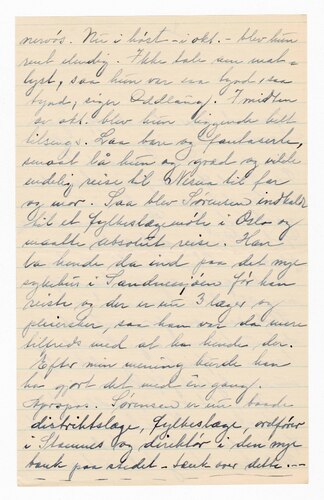 nervøs. Nu i høst - i okt. - blev hun
rent elendig. Ikke tale om mat-
lyst, saa hun var saa tynd, saa
tynd, siger Oddlaug. I midten
av okt. blev hun liggende helt
tilsengs. Laa bare og fantaserte,
snart lå hun og gråd og vilde
endelig reise til Nesna til far
og mor. Saa blev Sørensen indkaldt
til et fylkeslægemøte i Oslo og
maatte absolut reise. Han
la hende da ind paa det nye
sykehus i Sandnessjøen før han
reiste og der er nu 3 læger og
pleiersker, saa han var da mere
tilfreds med at ha hende der.
Efter min mening burde han
ha gjort det med én gang.
Apropos. Sørensen er nu baade
distriktslæge, fylkeslæge, ordfører
i Stamnes og direktør i den nye
bank paa stedet - tænk over dette. -